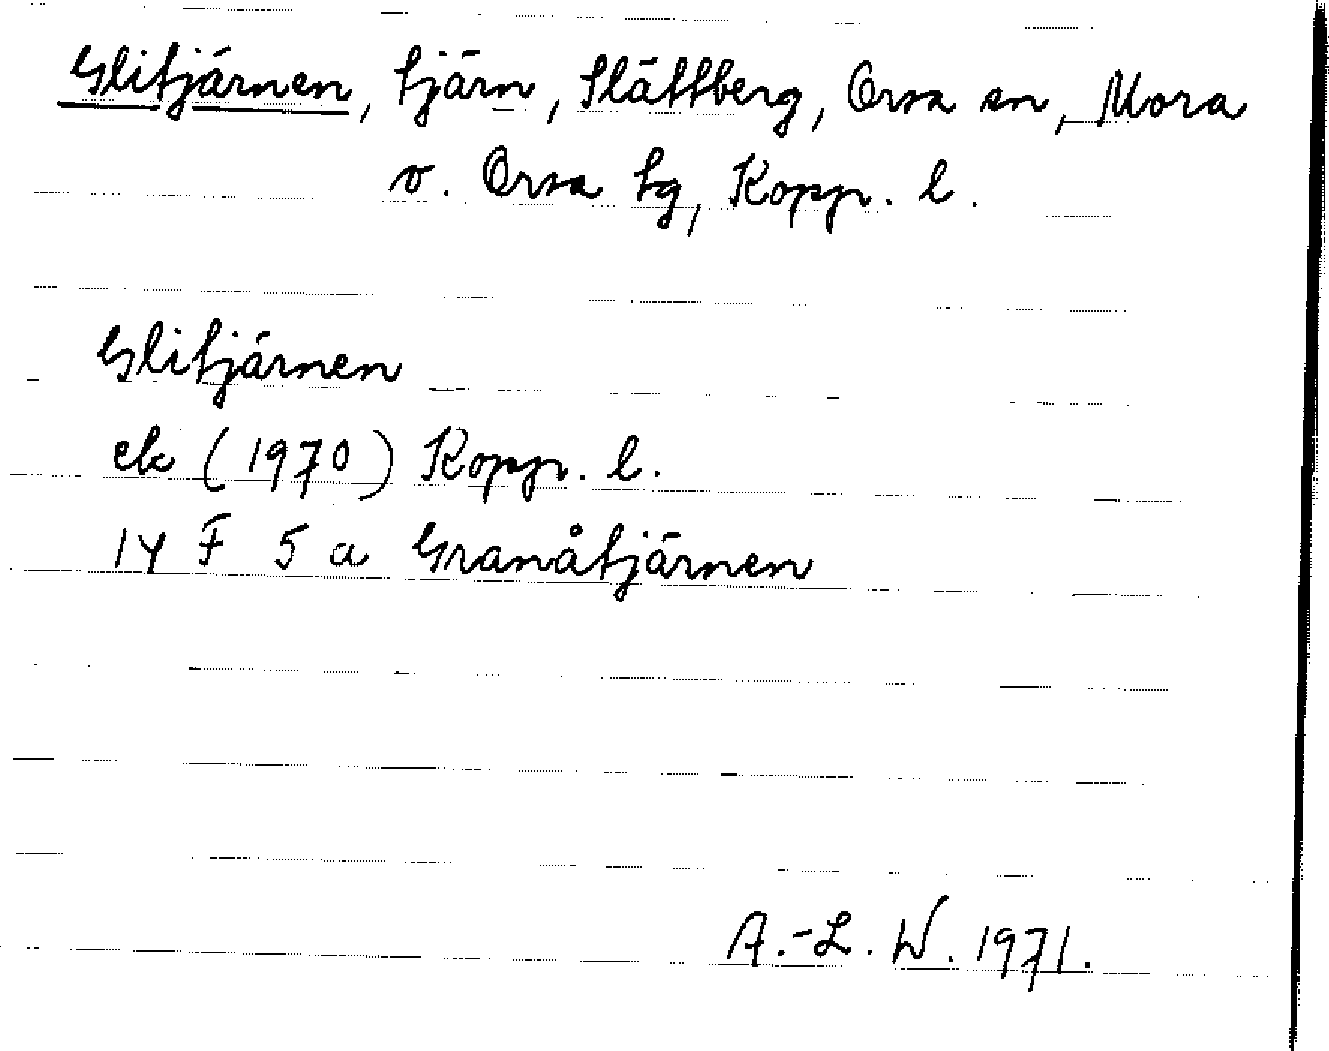 Glitjärnen, tjärn, Slättberg, Orsa sn, Mora
o. Orsa tg, Kopp. l.
Glitjärnen
ek (1970) Kopp. l.
14 F 5 a Granåtjärnen
A.-L. W. 1971.